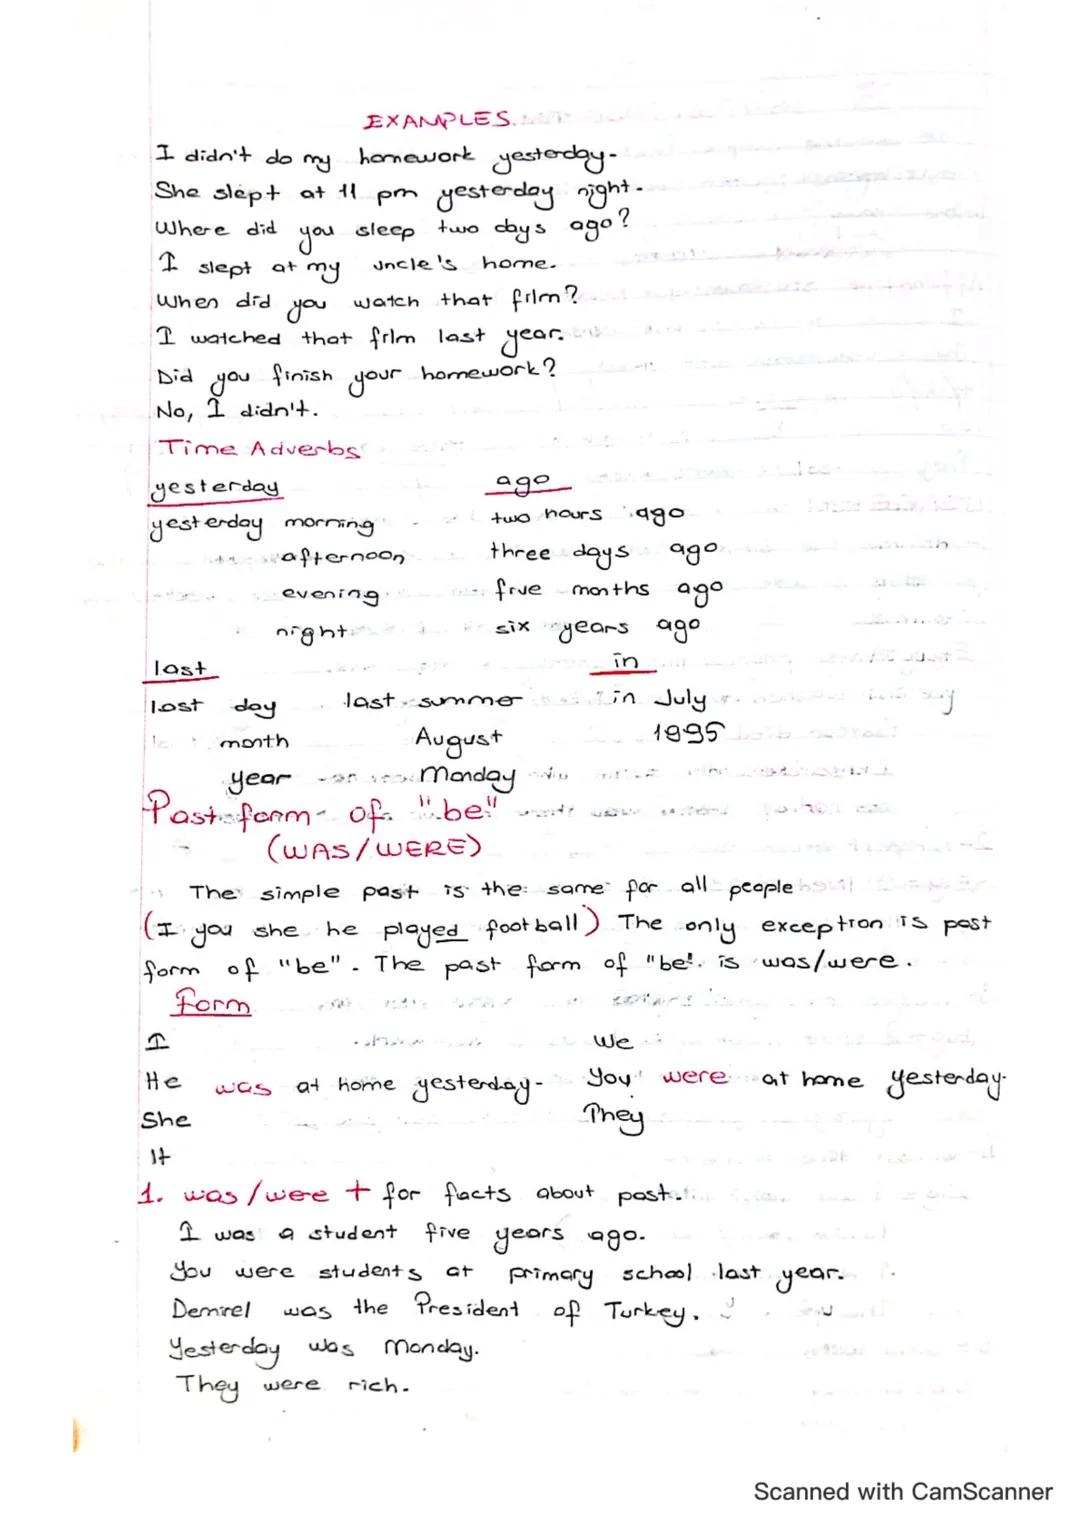 EXAMPLES.
I didn't do my homework yesterday.
She slept at 11 pm yesterday night.
Where did you sleep two days ago?
I slept at my uncle's home.
When did you watch that film?
I watched that film last year.
Did you finish your homework?
No, I didn't.
Time Adverbs
yesterday ago
yesterday morning two hours ago
afternoon three days ago
evening five months ago
night six years ago
last in
last day last summer in July
month August 1995
year Monday
Past form of "be"
(WAS/WERE)
The simple past is the same for all people
(I you she he played football) The only exception is past
form of "be". The past form of "be". is was/were.
Form
I We
He was at home yesterday. You were at home yesterday.
She They
It
1. was/were + for facts about past.
I was a student five years ago.
You were students at primary school last year.
Demirel was the President of Turkey.
Yesterday was Monday.
They were rich.
Scanned with CamScanner